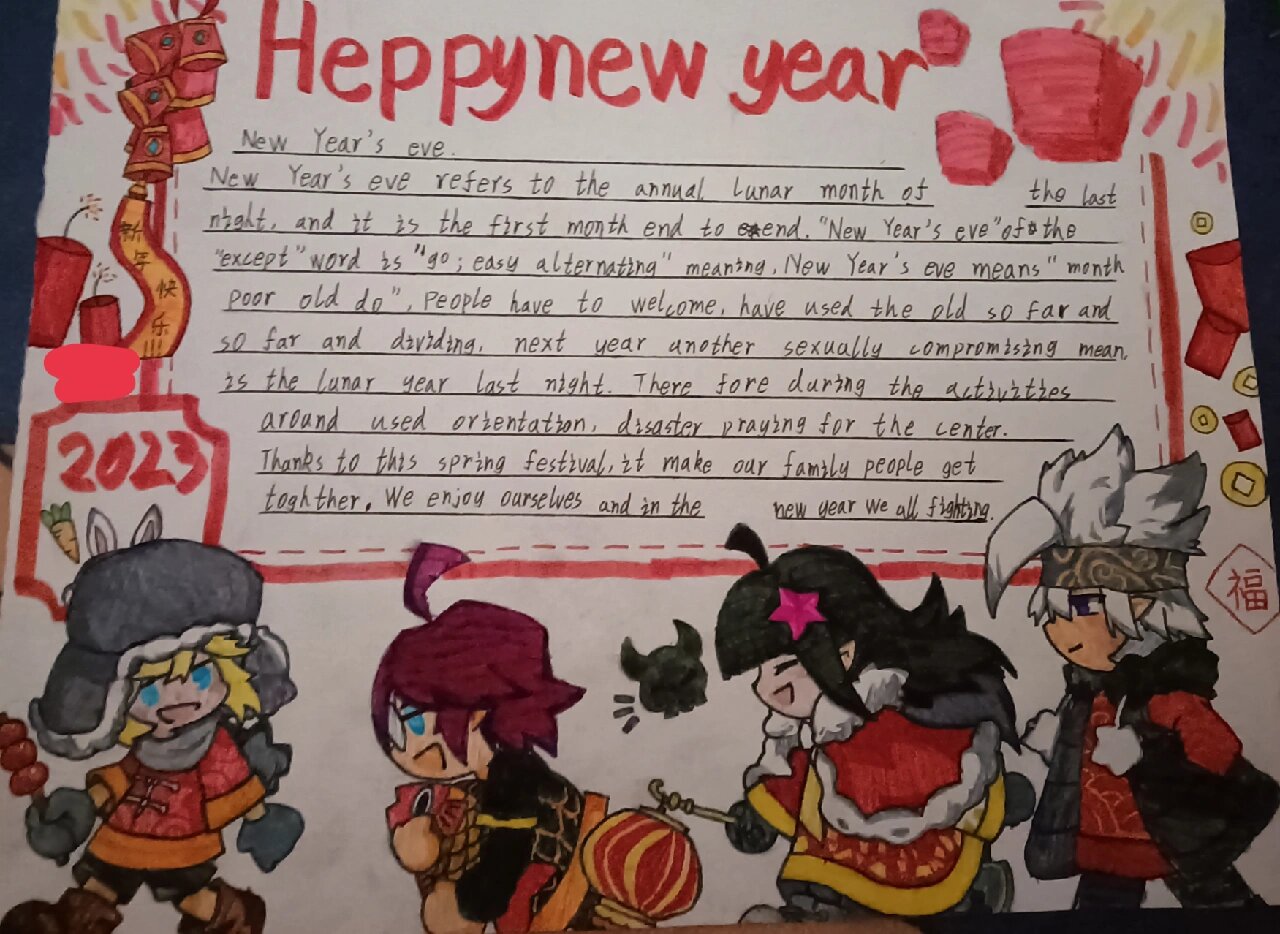 Heppynew year
New Year's eve.
New Year's eve refers to the annual lunar month of the last
night, and it is the first month end to end. "New Year's eve" of the
"except" word is "go; easy alternating" meaning, New Year's eve means "month
poor old do", People have to welcome, have used the old so far and
so far and dividing, next year another sexually compromising mean,
is the lunar year last night. There fore during the activities
around used orientation, disaster praying for the center.
Thanks to this spring festival, it make our family people get
toghther. We enjoy ourselves and in the new year we all fighting.
新年快乐!!!
2023
福